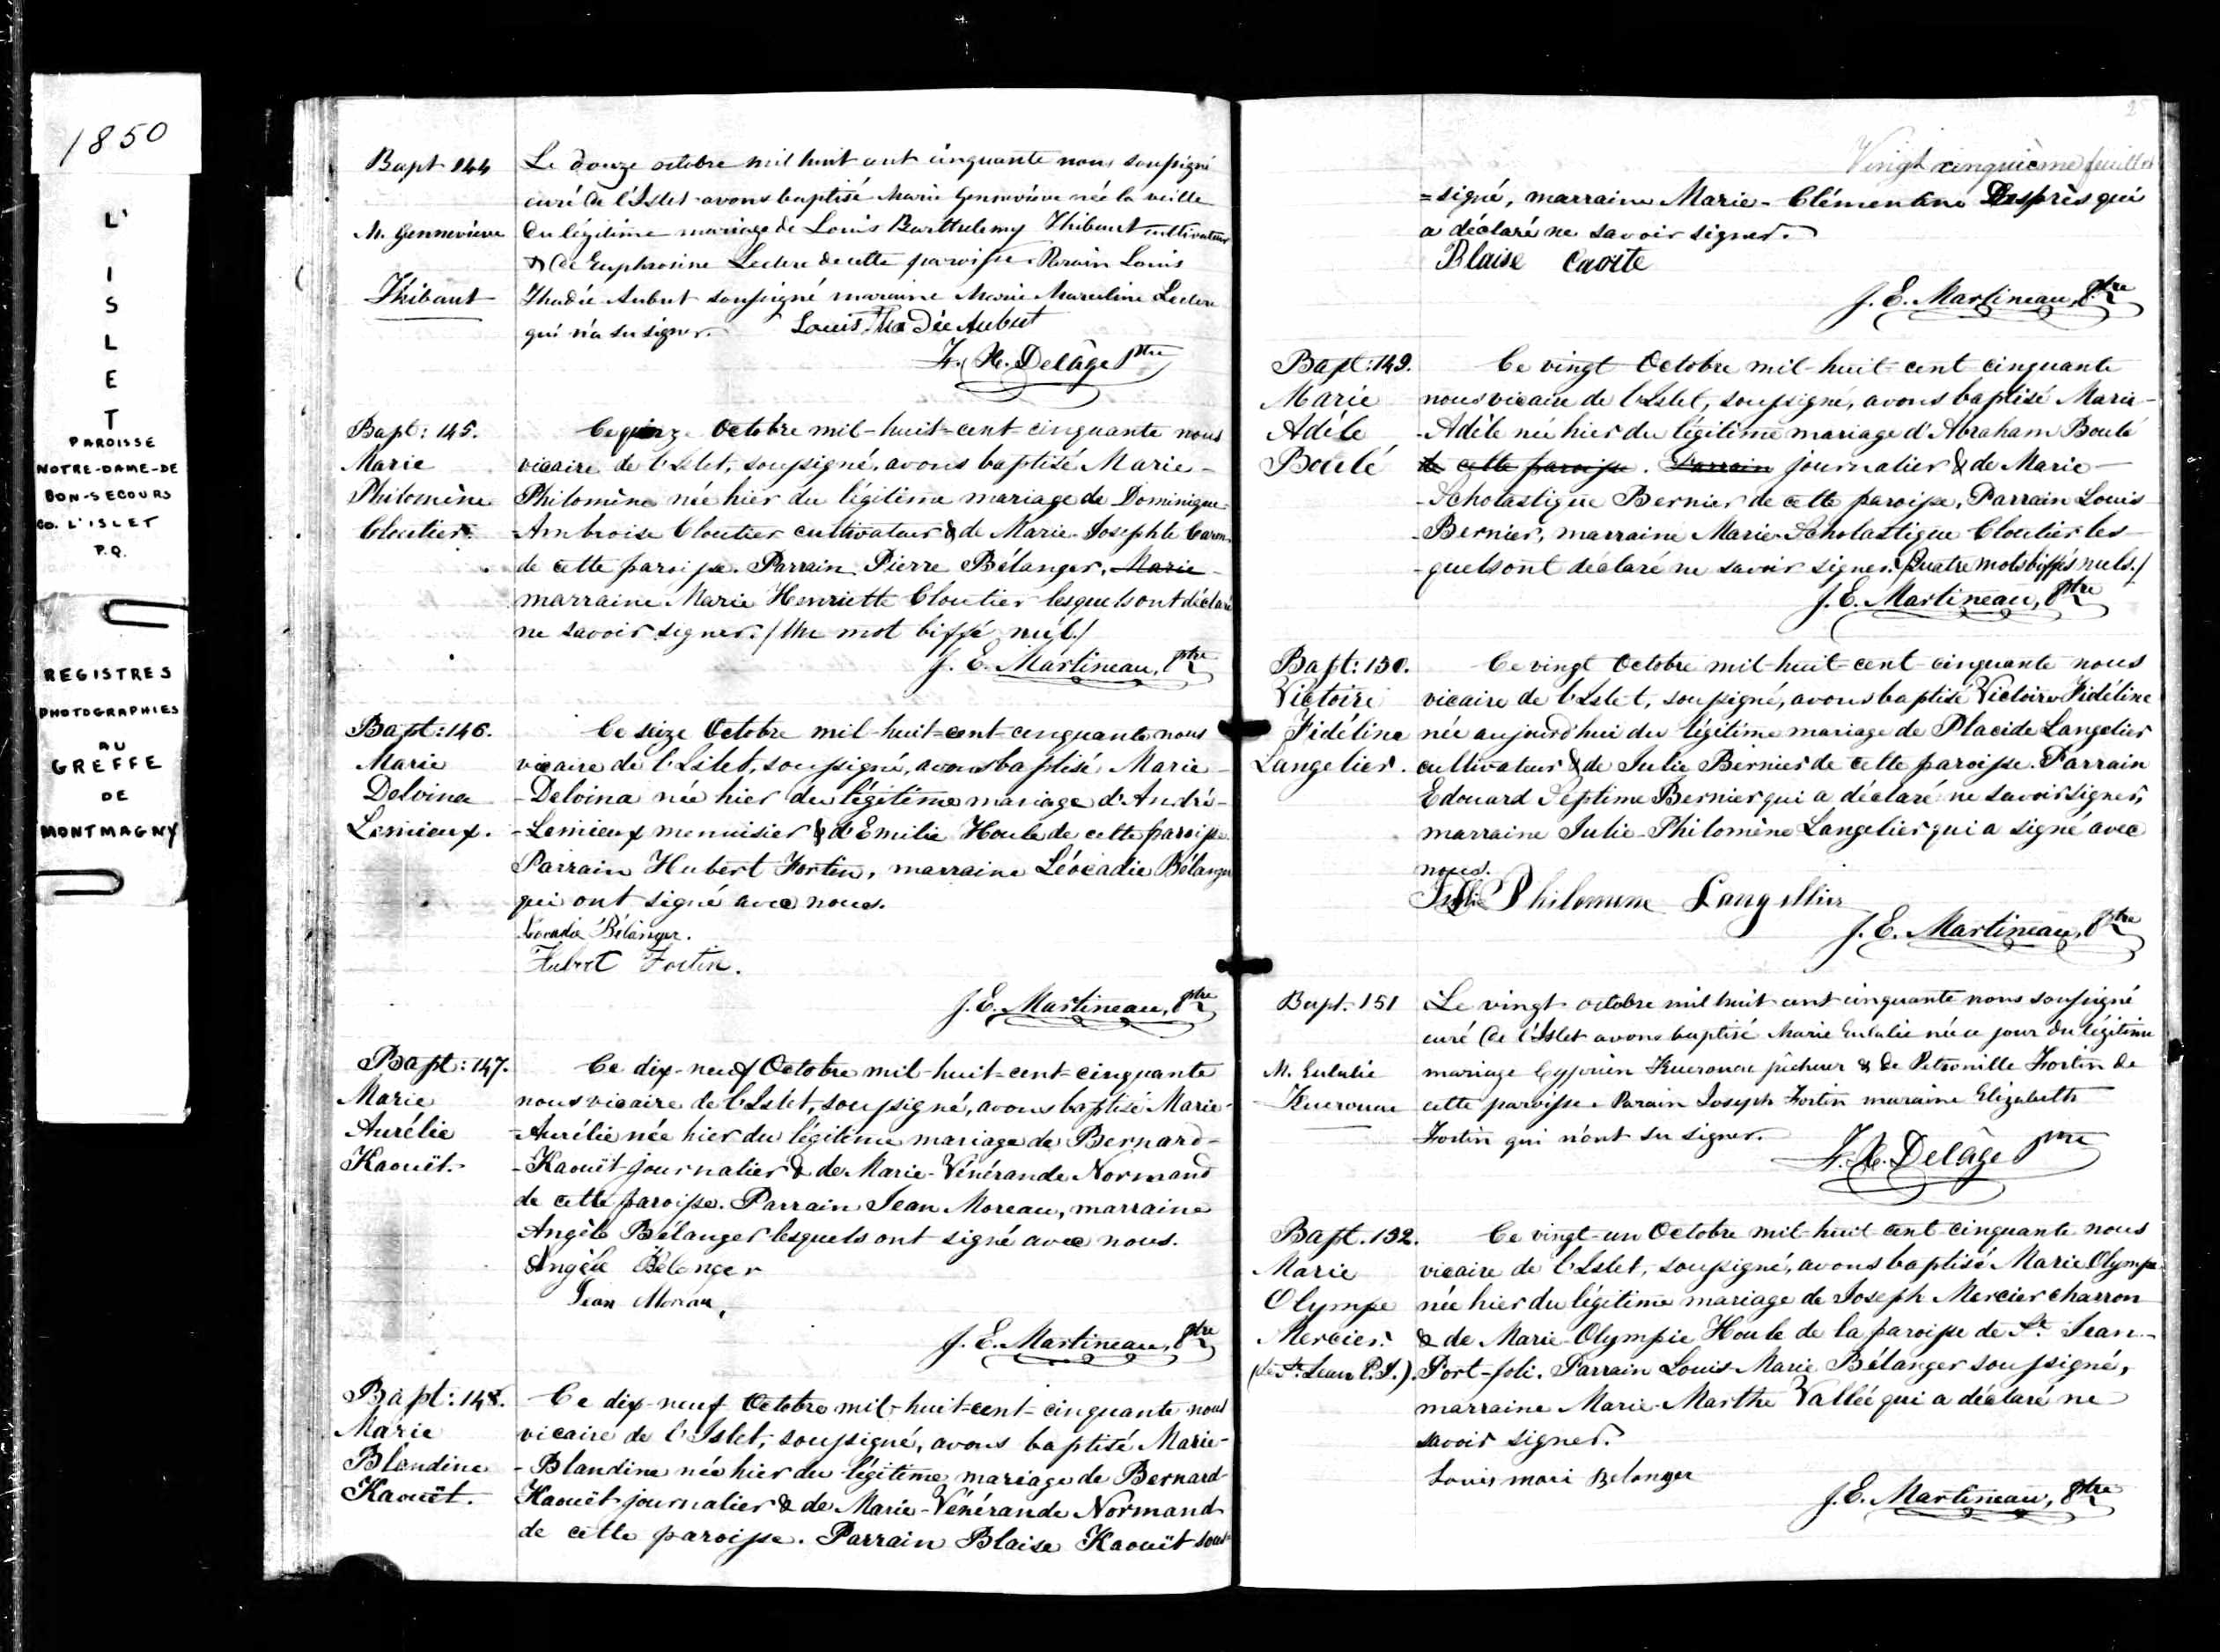 1850
L'
I
S
L
E
T
PAROISSE
NOTRE-DAME-DE
BON-SECOURS
CO. L'ISLET
P.Q.
REGISTRES
PHOTOGRAPHIES
AU
GREFFE
DE
MONTMAGNY
Bapt 144
M. Gennevieve
Thibaut
Le douze octobre mil huit cent cinquante nous soussigné
curé de l'Islet avons baptisé Marie Gennevieve née la veille
du légitime mariage de Louis Barthelemy Thibaut cultivateur
& de Euphrosine Leclerc de cette paroisse. Parain Louis
Thadée Aubut soussigné maraine Marie Marceline Leclerc
qui n'a su signer. Louis Thadée Aubut
F. X. Delâge Ptre
Bapt: 145.
Marie
Philomène
Cloutier.
Ce quinze Octobre mil-huit-cent-cinquante nous
vicaire de l'Islet, soussigné, avons baptisé Marie-
Philomène née hier du légitime mariage de Dominique-
-Ambroise Cloutier cultivateur & de Marie-Josephte Caron
de cette paroisse. Parrain Pierre Bélanger, Marie
marraine Marie Henriette Cloutier lesquels ont déclaré
ne savoir signer. / Un mot biffé nul. /
J. E. Martineau, Ptre
Bapt: 146.
Marie
Delvina
Lemieux.
Ce seize Octobre mil-huit-cent-cinquante nous
vicaire de l'Islet, soussigné, avons baptisé Marie-
-Delvina née hier du légitime mariage d'André-
-Lemieux menuisier & d'Emilie Houle de cette paroisse.
Parrain Hubert Fortin, marraine Léocadie Bélanger
qui ont signé avec nous.
Léocadie Bélanger.
Hubert Fortin.
J. E. Martineau, Ptre
Bapt: 147.
Marie
Aurélie
Kaouët.
Ce dix-neuf Octobre mil-huit-cent-cinquante
nous vicaire de l'Islet, soussigné, avons baptisé Marie-
-Aurélie née hier du légitime mariage de Bernard-
-Kaouët journalier & de Marie-Vénérande Normand
de cette paroisse. Parrain Jean Moreau, marraine
Angèle Bélanger lesquels ont signé avec nous.
Angèle Belenger
Jean Moreau
J. E. Martineau, Ptre
Bapt: 148.
Marie
Blandine
Kaouët.
Ce dix-neuf Octobre mil-huit-cent-cinquante nous
vicaire de l'Islet, soussigné, avons baptisé Marie-
-Blandine née hier du légitime mariage de Bernard
Kaouët journalier & de Marie-Vénérande Normand
de cette paroisse. Parrain Blaise Kaouët sous=
Vingt cinquième feuillet
=signé, marraine Marie-Clémentine Desprès qui
a déclaré ne savoir signer.
Blaise Caoite
J. E. Martineau, Ptre
Bapt: 149.
Marie
Adèle
Boulé
Ce vingt Octobre mil-huit-cent cinquante
nous vicaire de l'Islet, soussigné, avons baptisé Marie-
-Adèle née hier du légitime mariage d'Abraham Boulé
de cette paroisse. Parrain journalier & de Marie-
-Scholastique Bernier de cette paroisse, Parrain Louis
Bernier, marraine Marie Scholastique Cloutier les-
-quels ont déclaré ne savoir signer. (Quatre mots biffés nuls./
J. E. Martineau, Ptre
Bapt: 150.
Victoire
Fidéline
Langelier.
Ce vingt Octobre mil-huit-cent-cinquante nous
vicaire de l'Islet, soussigné, avons baptisé Victoire Fidéline
née aujourd'hui du légitime mariage de Placide Langelier
cultivateur & de Julie Bernier de cette paroisse. Parrain
Edouard Septime Bernier qui a déclaré ne savoir signer,
marraine Julie-Philomène Langelier qui a signé avec
nous.
Julie Philomene Langellier
J. E. Martineau, Ptre
Bapt. 151
M. Eulalie
Le vingt octobre mil huit cent cinquante nous soussigné
curé de l'Islet avons baptisé Marie Eulalie née ce jour du légitime
mariage Cyprien pêcheur & de Petronille Fortin de
cette paroisse. Parain Joseph Fortin maraine Elizabeth
Fortin qui n'ont su signer.
F. X. Delâge Ptre
Bapt. 152.
Marie
Olympe
Mercier.
(de St. Jean P.J.)
Ce vingt-un Octobre mil-huit-cent-cinquante nous
vicaire de l'Islet, soussigné, avons baptisé Marie Olympe
née hier du légitime mariage de Joseph Mercier charron
& de Marie-Olympie Houle de la paroisse de St. Jean-
Port-joli. Parrain Louis-Marie Bélanger soussigné,
marraine Marie-Marthe Vallée qui a déclaré ne
savoir signer.
Louis mari Belanger
J. E. Martineau, Ptre